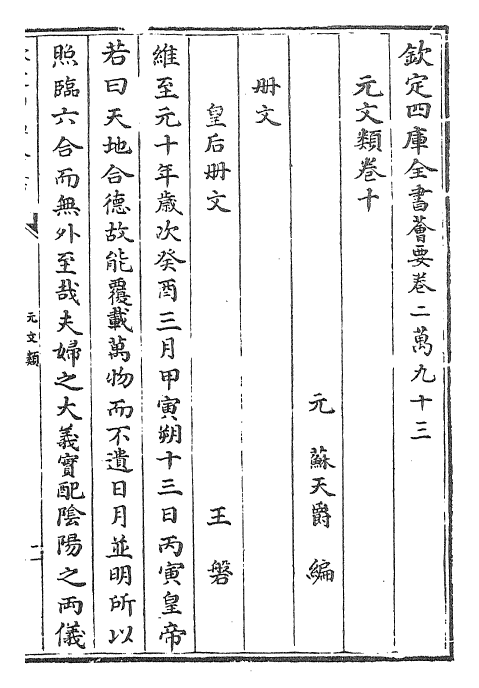 欽定四庫全書薈要卷二萬九十三
元文類卷十
元 蘇天爵 編
冊文
皇后冊文 王磐
維至元十年歲次癸酉三月甲寅朔十三日丙寅皇帝
若曰天地合德故能覆載萬物而不遺日月並明所以
照臨六合而無外至哉夫婦之大義實配陰陽之兩儀
元文類